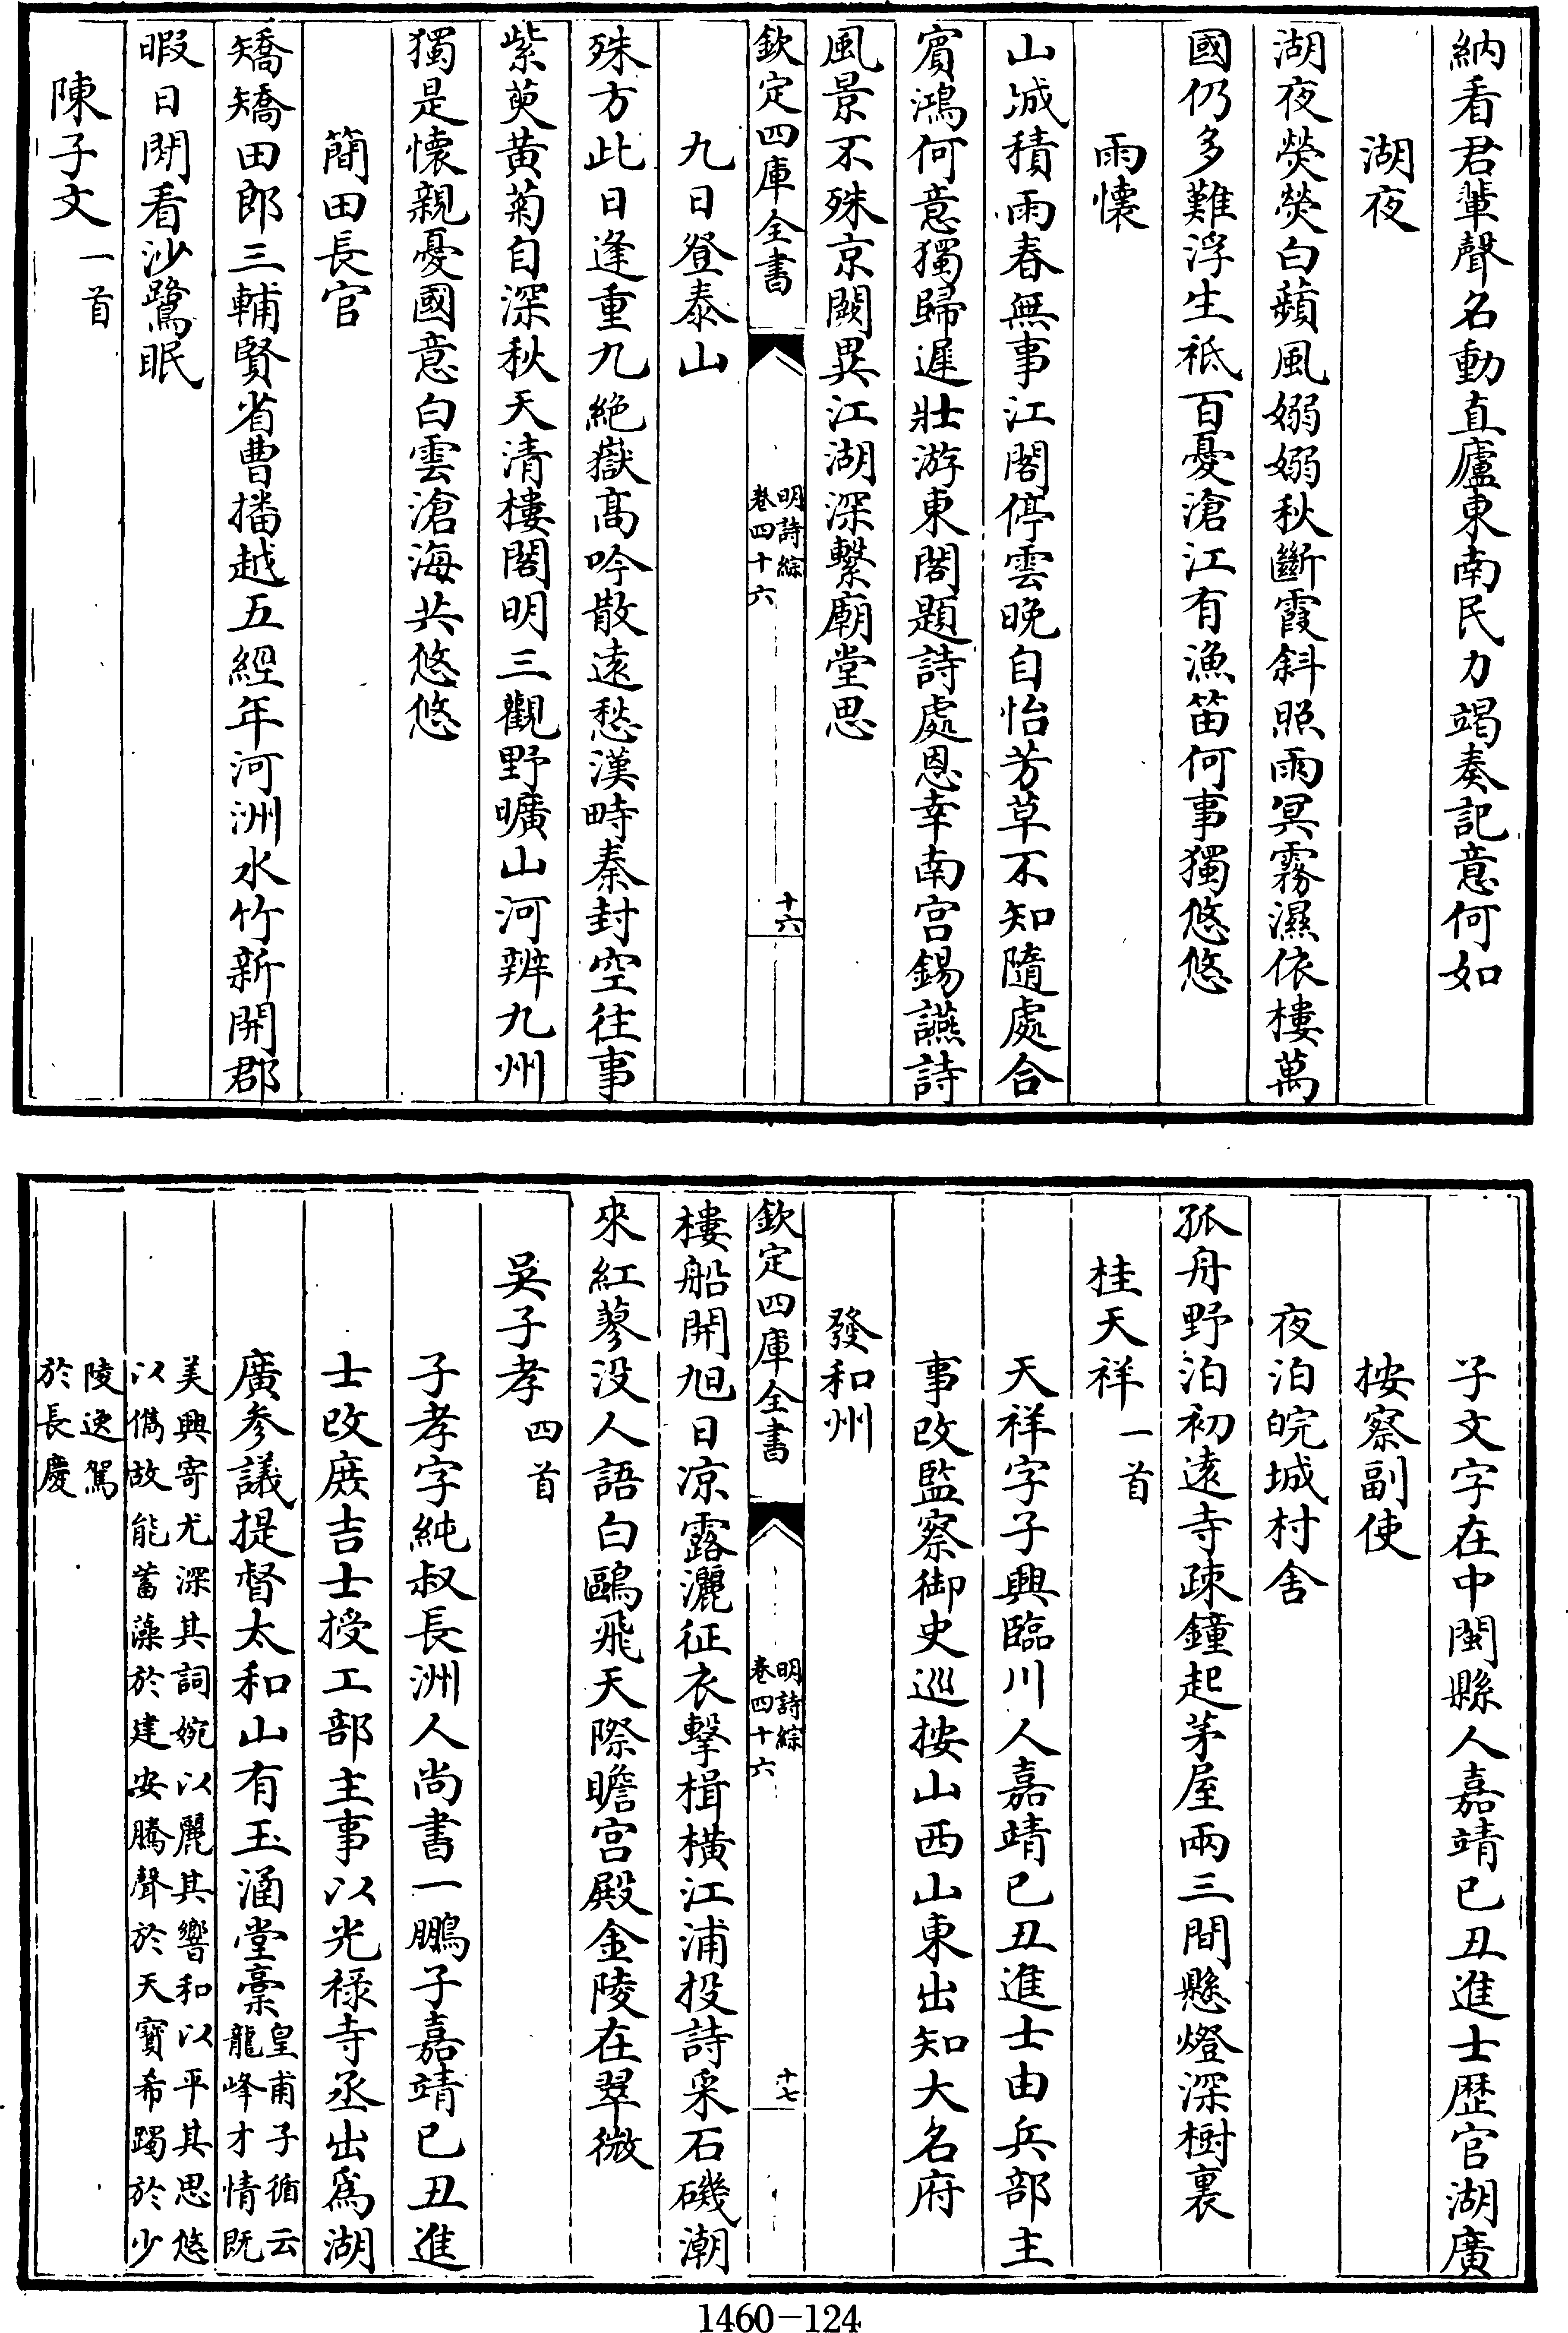 納看君輩聲名動直廬東南民力竭奏記意何如
湖夜
湖夜熒熒白蘋風嫋嫋秋斷霞斜照雨冥霧濕依樓萬
國仍多難浮生祗百憂滄江有漁笛何事獨悠悠
雨懷
山城積雨春無事江閣停雲晚自怡芳草不知隨處合
賓鴻何意獨歸遲壯游東閣題詩處恩幸南宮錫讌詩
風景不殊京闕異江湖深繫廟堂思
欽定四庫全書
明詩綜
卷四十六
十六
九日登泰山
殊方此日逢重九絶嶽高吟散逺愁漢畤秦封空往事
紫萸黄菊自深秋天清樓閣明三觀野曠山河辨九州
獨是懷親憂國意白雲滄海共悠悠
簡田長官
矯矯田郎三輔賢省曹播越五經年河洲水竹新開郡
暇日閒看沙鷺眠
陳子文一首
子文字在中閩縣人嘉靖己丑進士歴官湖廣
按察副使
夜泊皖城村舍
孤舟野泊初遠寺疎鐘起茅屋兩三間懸燈深樹裏
桂天祥一首
天祥字子興臨川人嘉靖己丑進士由兵部主
事改監察御史巡按山西山東出知大名府
發和州
欽定四庫全書
明詩綜
卷四十六
十七
樓船開旭日凉露灑征衣擊楫橫江浦投詩采石磯潮
來紅蓼没人語白鷗飛天際瞻宫殿金陵在翠微
吳子孝四首
子孝字純叔長洲人尚書一鵬子嘉靖己丑進
士改庶吉士授工部主事以光禄寺丞出爲湖
廣參議提督太和山有玉涵堂稾皇甫子循云
龍峰才情既
美興寄尤深其詞婉以麗其響和以平其思悠
以儁故能蓄藻於建安騰聲於天寳希躅於少
陵逸駕
於長慶
1460-124